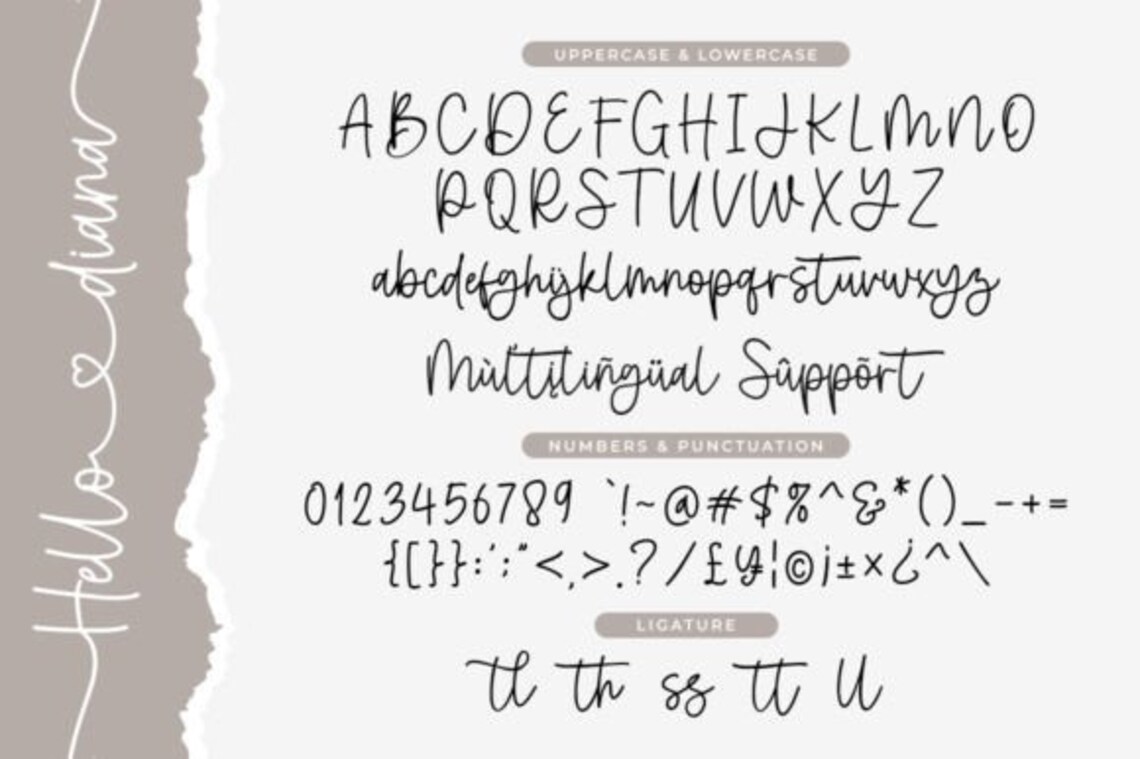 Hello diana
UPPERCASE & LOWERCASE
ABCDEFGHIJKLMNO
PQRSTUVWXYZ
abcdefghijklmnopqrstuvwxyz
Mùltįliñgüal Sûppõrt
NUMBERS & PUNCTUATION
0123456789 `!~@#$%^&*()_-+=
{[}}:';"<,>.?/£¥¦©¡±×¿^\
LIGATURE
tl th ss tt ll